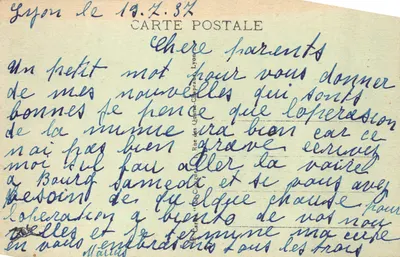 Lyon le 19.7.37
CARTE POSTALE
Chere parents
un petit mot pour vous donner
de mes nouvelles qui sonts
bonnes je pence que loperasion
de la mimie ira bien car ce
nai pas bien grave ecrivez
moi sil fau aller la voire
a Bourg samedi et si vous avez
besoin de quelque chause pour
loperation a biento de vos nou
velles et je termine ma carte
en vous embrasents tous les trois